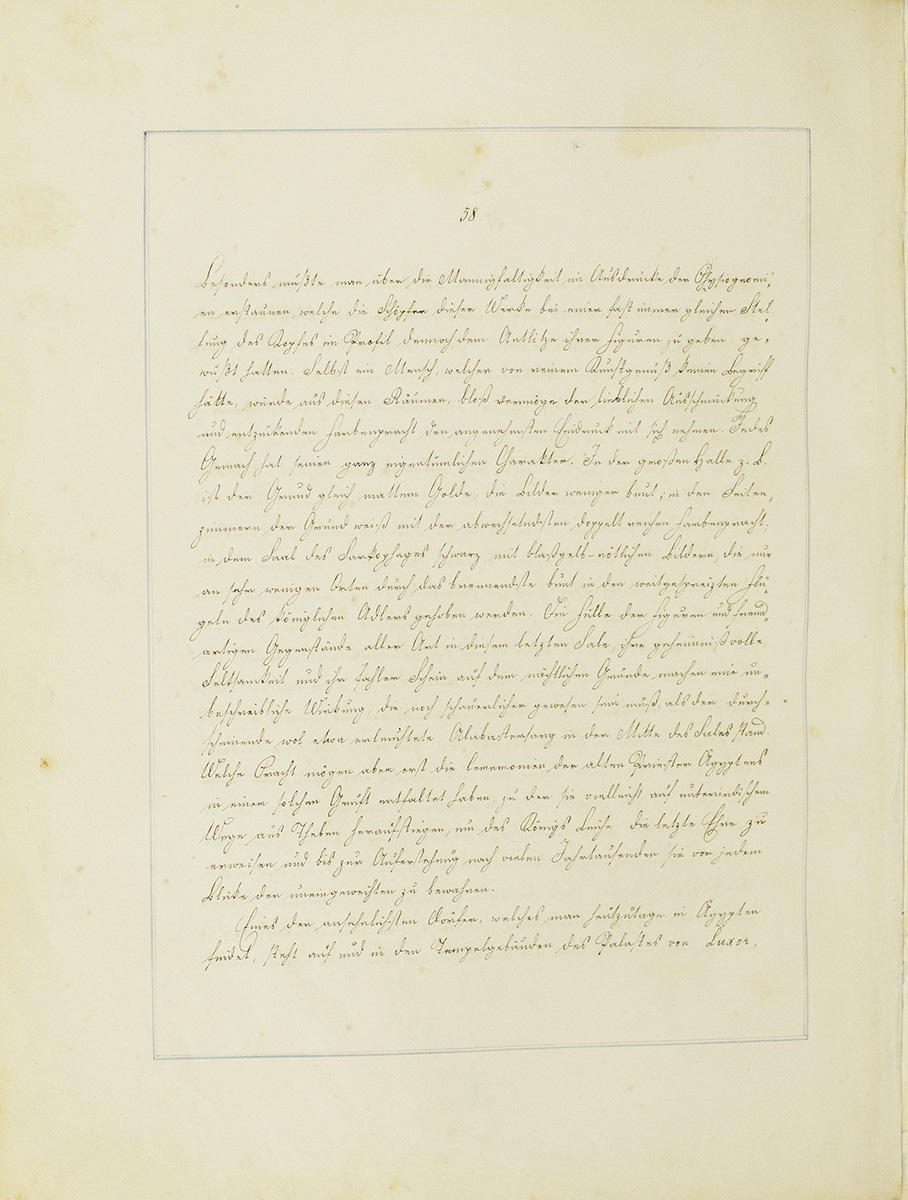 58
Besonders mußte man über die Mannigfaltigkeit im Ausdrucke der Physiognomi-
en erstaunen, welche die Schöpfer dieser Werke bei einer fast immer gleichen Stel-
lung des Kopfes im Profil dennoch dem Antlitze ihrer Figuren zu geben ge-
wußt hatten. Selbst ein Mensch, welcher von reinem Kunstgenuß keinen Begriff
hätte, würde aus diesen Räumen, bloß vermöge der lieblichen Ausschmückung
und entzückenden Farbenpracht den angenehmsten Eindruck mit sich nehmen. Jedes
Gemach hat seinen ganz eigentümlichen Charakter. In der großen Halle z. B.
ist der Grund gleich mattem Golde, die Bilder weniger bunt; in den Seiten-
zimmern der Grund weiß mit der abwechselndsten doppelt reichen Farbenpracht;
in dem Saal des Sarkophages schwarz mit blaßgelb-rötlichen Bildern, die nur
an sehr wenigen Orten durch das brennendste bunt in den weitgespreizten Flü-
geln des königlichen Adlers gehoben werden. Die Fülle der Figuren und fremd-
artigen Gegenstände aller Art in diesem letzten Sale, ihre geheimnißvolle
Seltsamkeit und ihr fahler Schein auf dem nächtlichen Grunde machen eine un-
beschreibliche Wirkung, die noch schauerlicher gewesen sein muß, als der durch-
scheinende wol etwa erleuchtete Alabastersarg in der Mitte des Sales stand.
Welche Pracht mögen aber erst die Ceremonien der alten Priester Ägyptens
in einer solchen Gruft entfaltet haben, zu der sie vielleicht auf unterirdischem
Wege aus Theben heraufstiegen, um des Königs Leiche die letzte Ehre zu
erweisen und bis zur Auferstehung nach vielen Jahrtausenden sie vor jedem
Blicke der uneingeweihten zu bewahren.
Eines der ansehnlichsten Dörfer, welches man heutzutage in Ägypten
findet, steht auf und in den Tempelgebäuden des Palastes von Luxor,